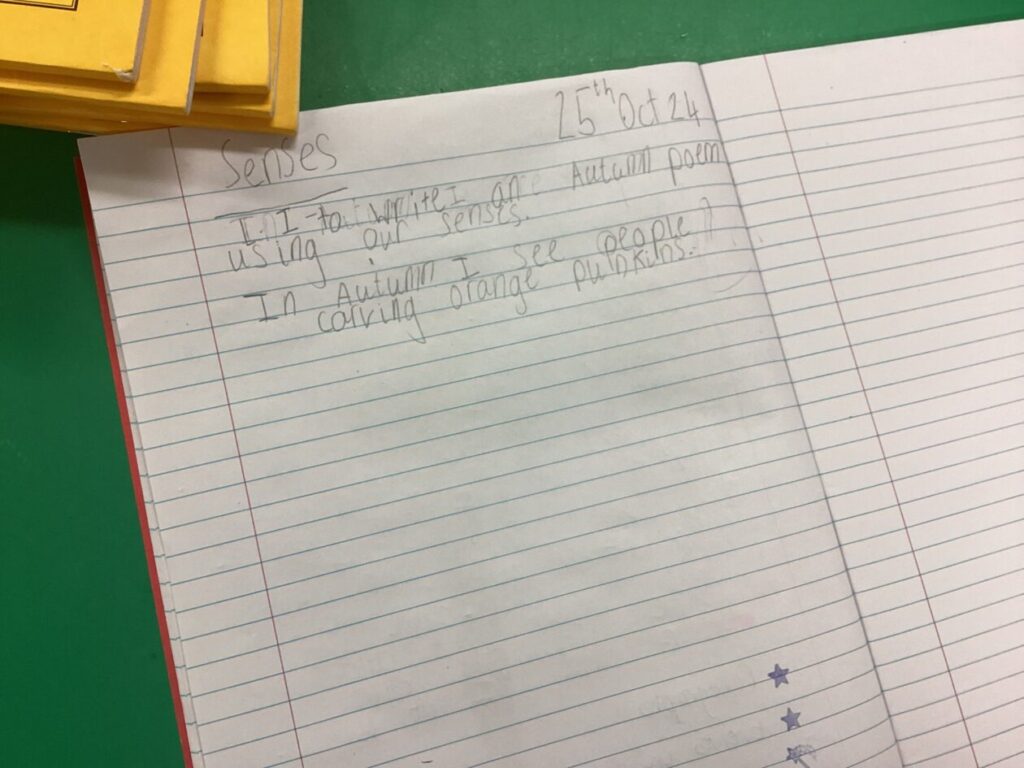 Senses
25th Oct 24
L.I to write an Autumn poem
using our senses.
In Autumn I see people
carving orange pumkins.